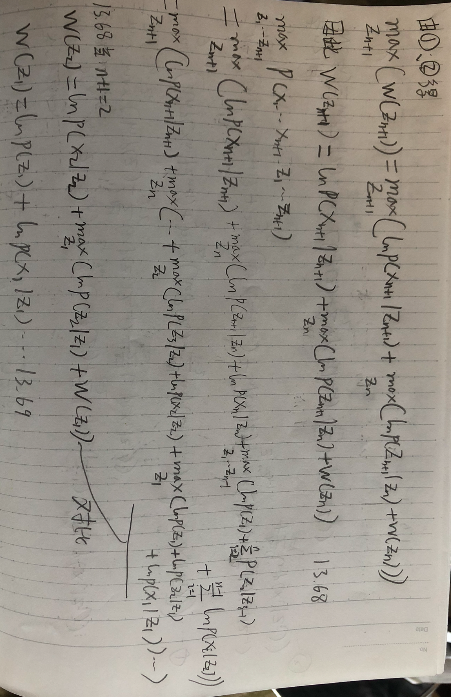 由①,②得
max_{z_{n+1}} (W(z_{n+1})) = max_{z_{n+1}} (ln p(x_{n+1}|z_{n+1}) + max_{z_n} (ln p(z_{n+1}|z_n) + W(z_n)))
因此 W(z_{n+1}) = ln p(x_{n+1}|z_{n+1}) + max_{z_n} (ln p(z_{n+1}|z_n) + W(z_n)) 13.68
max_{z_1…z_{n+1}} p(x_1…x_{n+1} z_1…z_{n+1})
= max_{z_{n+1}} (ln p(x_{n+1}|z_{n+1}) + max_{z_n} (ln p(z_{n+1}|z_n) + ln p(x_n|z_n) + max_{z_1…z_{n-1}} (ln p(z_1) + Σ_{i=2}^{n} p(z_i|z_{i-1})
+ Σ_{i=1}^{n-1} ln p(x_i|z_i)))
= max_{z_{n+1}} (ln p(x_{n+1}|z_{n+1}) + max_{z_n} (… + max_{z_2} (ln p(z_3|z_2) + ln p(x_2|z_2) + max_{z_1} (ln p(z_1) + ln p(z_2|z_1)
+ ln p(x_1|z_1)) …)
13.68 当 n+1=2
W(z_2) = ln p(x_2|z_2) + max_{z_1} (ln p(z_2|z_1) + W(z_1)) 对比
W(z_1) = ln p(z_1) + ln p(x_1|z_1) … 13.69